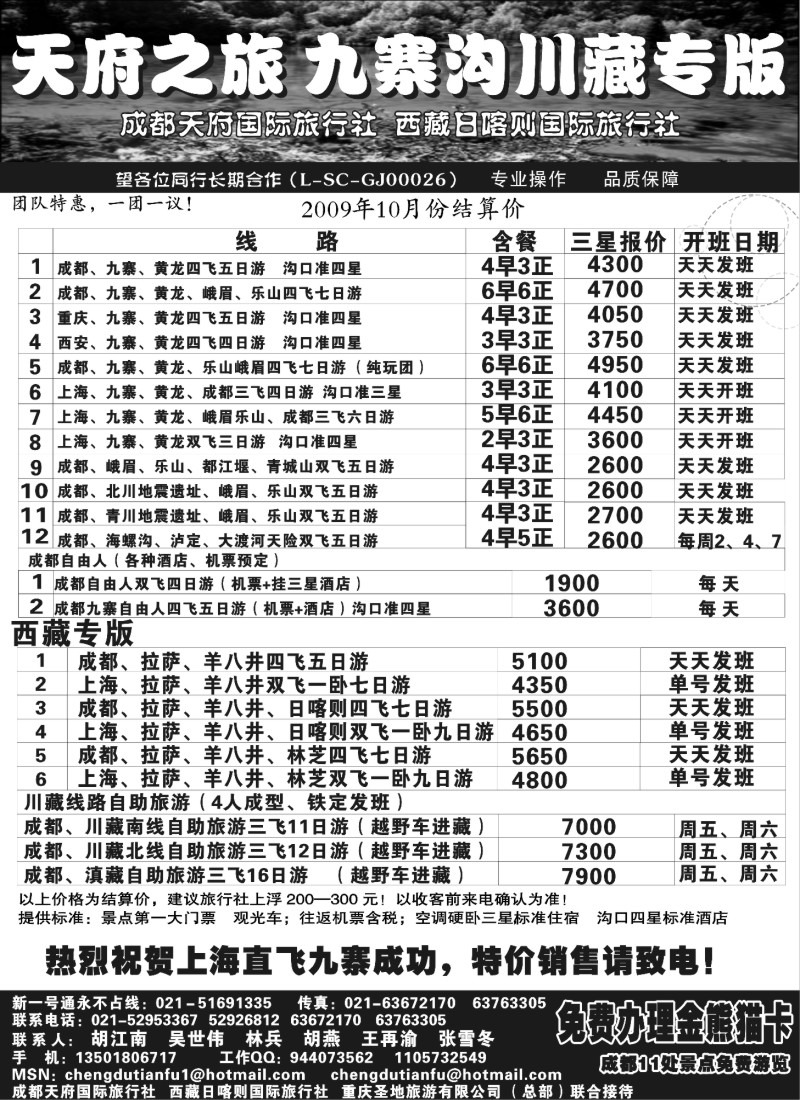 天府之旅 九寨沟川藏专版
成都天府国际旅行社 西藏日喀则国际旅行社
望各位同行长期合作（L-SC-GJ00026） 专业操作 品质保障
团队特惠，一团一议！
2009年10月份结算价
线 路 含餐 三星报价 开班日期
1 成都、九寨、黄龙四飞五日游 沟口准四星 4早3正 4300 天天发班
2 成都、九寨、黄龙、峨眉、乐山四飞七日游 6早6正 4700 天天发班
3 重庆、九寨、黄龙四飞五日游 沟口准四星 4早3正 4050 天天发班
4 西安、九寨、黄龙四飞四日游 沟口准四星 3早3正 3750 天天发班
5 成都、九寨、黄龙、乐山峨眉四飞七日游（纯玩团） 6早6正 4950 天天发班
6 上海、九寨、黄龙、成都三飞四日游 沟口准三星 3早3正 4100 天天开班
7 上海、九寨、黄龙、峨眉乐山、成都三飞六日游 5早6正 4450 天天开班
8 上海、九寨、黄龙双飞三日游 沟口准四星 2早3正 3600 天天开班
9 成都、峨眉、乐山、都江堰、青城山双飞五日游 4早3正 2600 天天发班
10 成都、北川地震遗址、峨眉、乐山双飞五日游 4早3正 2600 天天发班
11 成都、青川地震遗址、峨眉、乐山双飞五日游 4早3正 2700 天天发班
12 成都、海螺沟、泸定、大渡河天险双飞五日游 4早5正 2600 每周2、4、7
成都自由人（各种酒店、机票预定）
1 成都自由人双飞四日游（机票+挂三星酒店） 1900 每天
2 成都九寨自由人四飞五日游（机票+酒店）沟口准四星 3600 每天
西藏专版
1 成都、拉萨、羊八井四飞五日游 5100 天天发班
2 上海、拉萨、羊八井双飞一卧七日游 4350 单号发班
3 成都、拉萨、羊八井、日喀则四飞七日游 5500 天天发班
4 上海、拉萨、羊八井、日喀则双飞一卧九日游 4650 单号发班
5 成都、拉萨、羊八井、林芝四飞七日游 5650 天天发班
6 上海、拉萨、羊八井、林芝双飞一卧九日游 4800 单号发班
川藏线路自助旅游（4人成型、铁定发班）
成都、川藏南线自助旅游三飞11日游（越野车进藏） 7000 周五、周六
成都、川藏北线自助旅游三飞12日游（越野车进藏） 7300 周五、周六
成都、滇藏自助旅游三飞16日游 （越野车进藏） 7900 周五、周六
以上价格为结算价，建议旅行社上浮 200—300 元！以收客前来电确认为准！
提供标准：景点第一大门票 观光车；往返机票含税；空调硬卧三星标准住宿 沟口四星标准酒店
热烈祝贺上海直飞九寨成功，特价销售请致电！
新一号通永不占线：021-51691335 传真：021-63672170 63763305
联系电话：021-52953367 52926812 63672170 63763305
联系人：胡江南 吴世伟 林兵 胡燕 王再渝 张雪冬
手 机：13501806717 工作QQ：944073562 1105732549
MSN：chengdutianfu1@hotmail.com chengdutianfu@hotmail.com
成都天府国际旅行社 西藏日喀则国际旅行社 重庆圣地旅游有限公司（总部）联合接待
免费办理金熊猫卡
成都11处景点免费游览